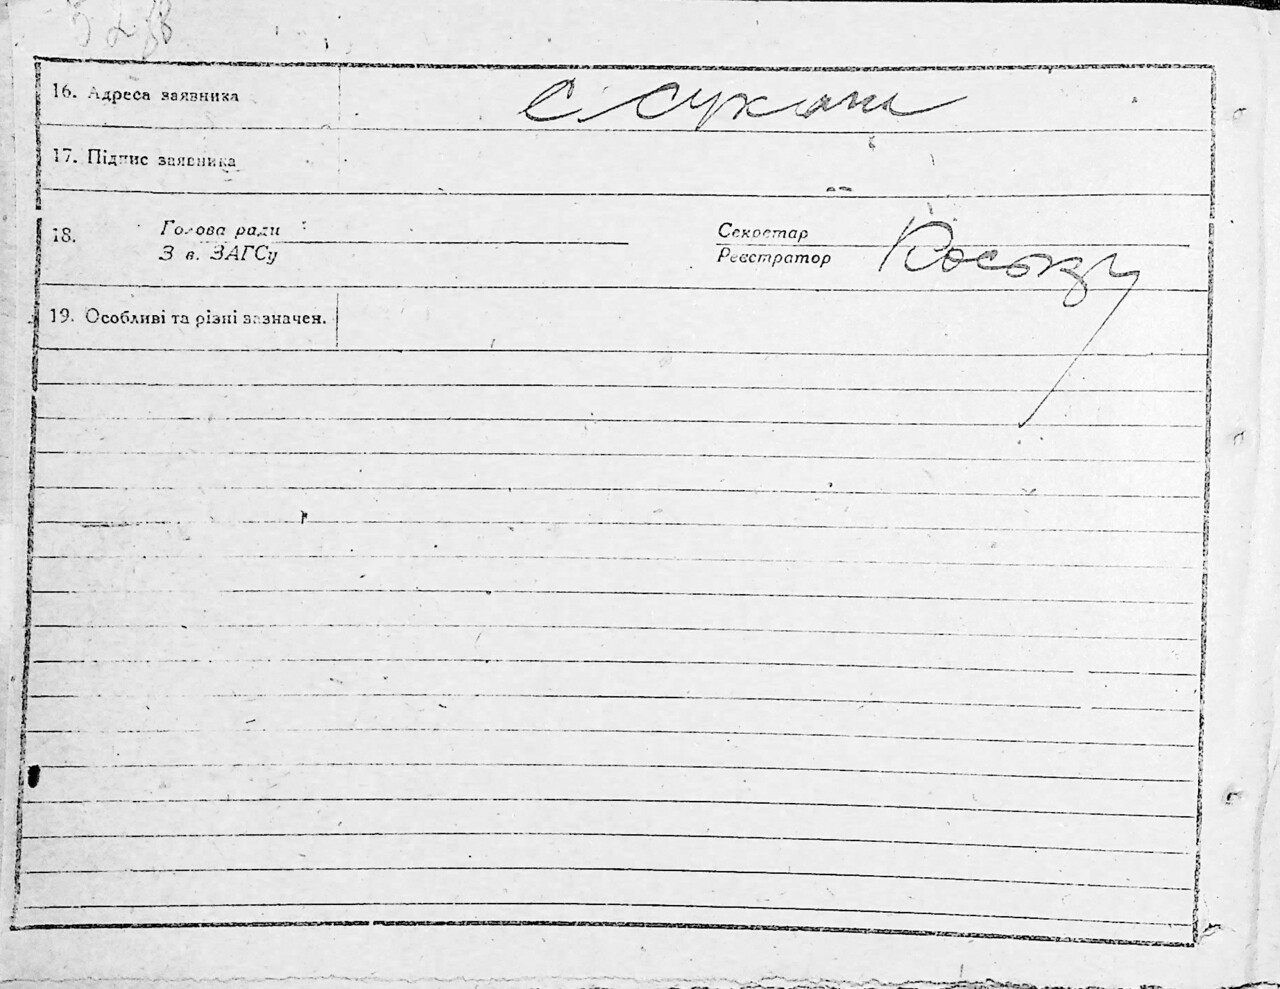 16. Адреса заявника
с Сукани
17. Підпис заявника
18. Голова ради
З в. ЗАГСу
Секретар
Реєстратор
19. Особливі та різні зазначен.